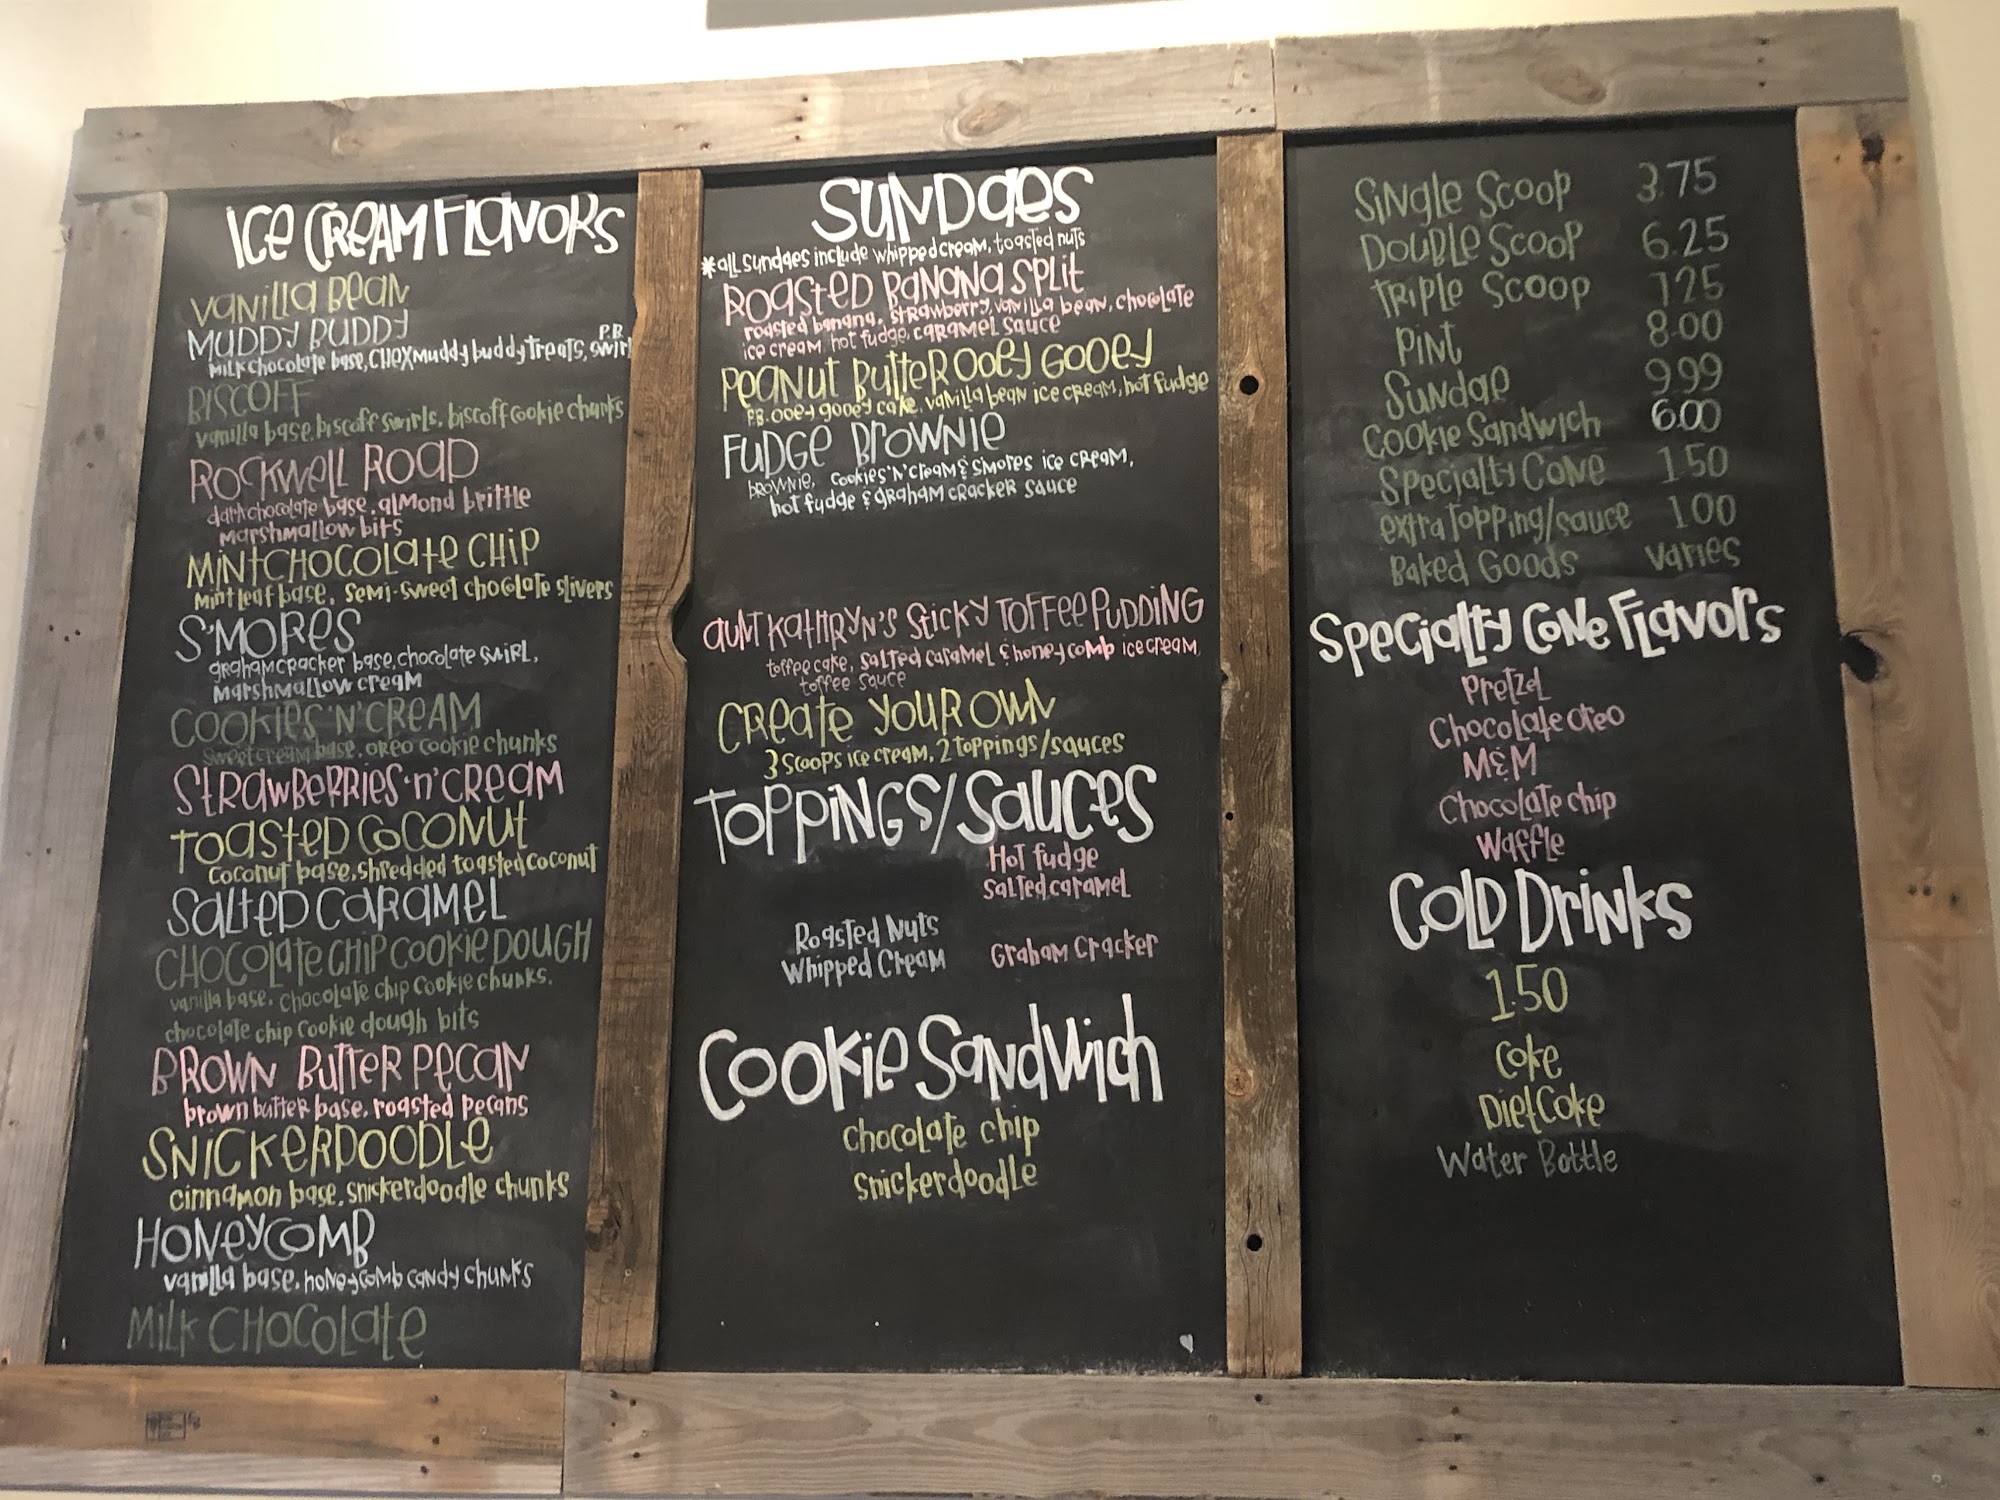 ICE CREAM FLAVORS
VANILLA BEAN
MUDDY BUDDY
P.B.
MILK chocolate base, CHEX Muddy buddy treats, swirl
BISCOFF
vanilla base, biscoff swirls, biscoff cookie chunks
ROCKWELL ROAD
dark chocolate base, almond brittle
marshmallow bits
MINT CHOCOLATE CHIP
Mint leaf base, semi-sweet chocolate slivers
S'MORES
graham cracker base, chocolate swirl,
marshmallow cream
COOKIES 'N' CREAM
sweet cream base, oreo cookie chunks
STRAWBERRIES 'n' CREAM
TOASTED COCONUT
coconut base, shredded toasted coconut
SALTED CARAMEL
CHOCOLATE CHIP COOKIE DOUGH
vanilla base, chocolate chip cookie chunks,
chocolate chip cookie dough bits
BROWN BUTTER PECAN
brown butter base, roasted pecans
SNICKERDOODLE
cinnamon base, snickerdoodle chunks
HONEYCOMB
vanilla base, honeycomb candy chunks
MILK CHOCOLATE
SUNDAES
*all sundaes include whipped cream, toasted nuts
ROASTED BANANA SPLIT
roasted banana, strawberry, vanilla bean, chocolate
ice cream, hot fudge, caramel sauce
PEANUT BUTTER OOEY GOOEY
P.B. ooey gooey cake, vanilla bean ice cream, hot fudge
FUDGE BROWNIE
brownie, cookies 'n' cream & smores ice cream,
hot fudge & graham cracker sauce
AUNT KATHRYN'S STICKY TOFFEE PUDDING
toffee cake, salted caramel & honeycomb ice cream,
toffee sauce
CREATE YOUR OWN
3 scoops ice cream, 2 toppings/sauces
TOPPINGS/SAUCES
Hot fudge
salted caramel
Roasted Nuts
Whipped Cream
Graham Cracker
COOKIE SANDWICH
chocolate chip
snickerdoodle
Single Scoop 3.75
Double Scoop 6.25
Triple Scoop 7.25
Pint 8.00
Sundae 9.99
Cookie Sandwich 6.00
Specialty Cone 1.50
extra topping/sauce 1.00
Baked Goods varies
Specialty Cone Flavors
Pretzel
Chocolate Oreo
M&M
Chocolate chip
Waffle
COLD DRINKS
1.50
Coke
Diet Coke
Water Bottle